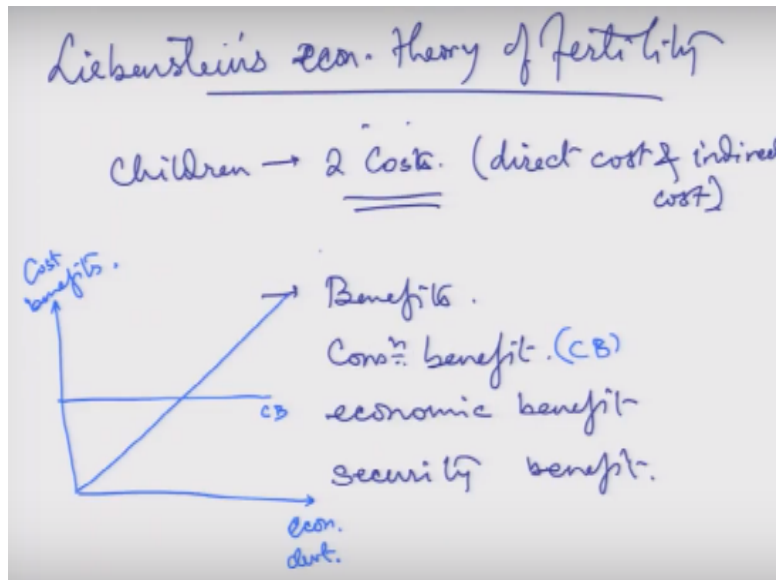 Liebenstein's econ. theory of Fertility
Children → 2 Costs. (direct cost & indirec
cost)
Cost
benefits.
→ Benefits.
Consⁿ. benefit. (CB)
CB
economic benefit
security benefit.
econ.
devt.